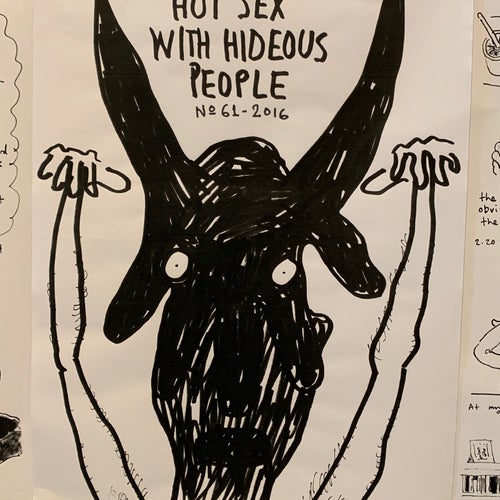 HOT SEX
WITH HIDEOUS
PEOPLE
No 61-2016
the
obvi
the
2.20
At my